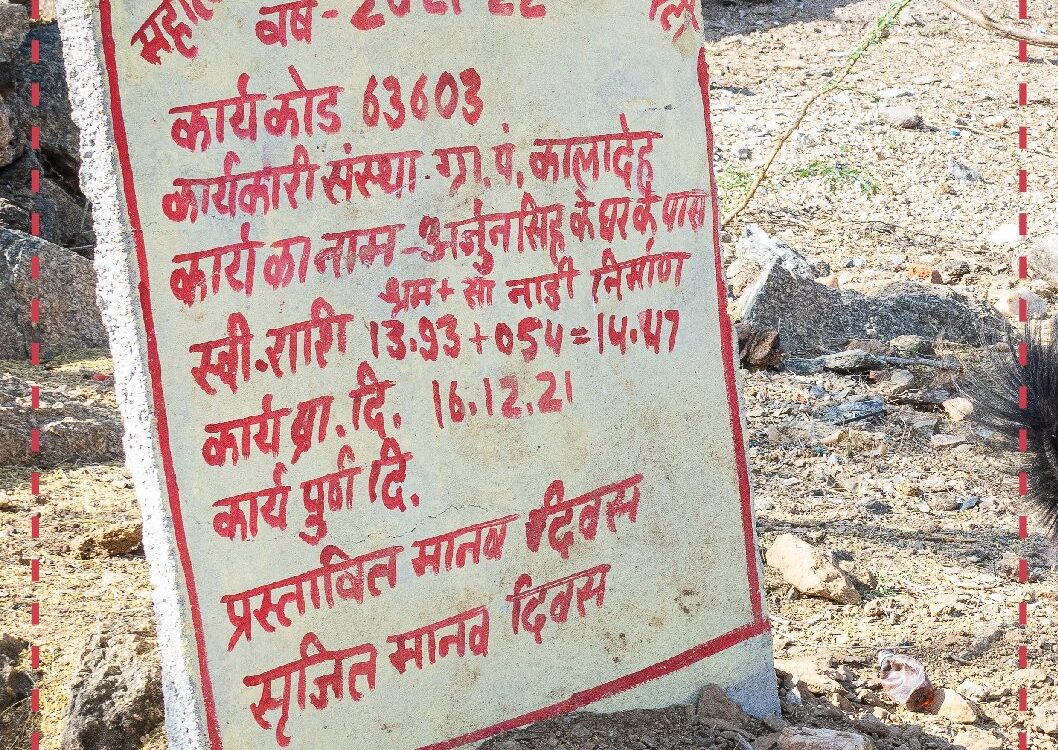 वर्ष - 2021-22
कार्य कोड 63603
कार्यकारी संस्था - ग्रा. पं. कालादेह
कार्य का नाम - अर्जुनसिह के घर के पास
श्रम + सा नाडी निर्माण
स्वी. राशि 13.93 + 054 = 14.47
कार्य प्रा. दि. 16.12.21
कार्य पुर्ण दि.
प्रस्तावित मानव दिवस
सृजित मानव दिवस